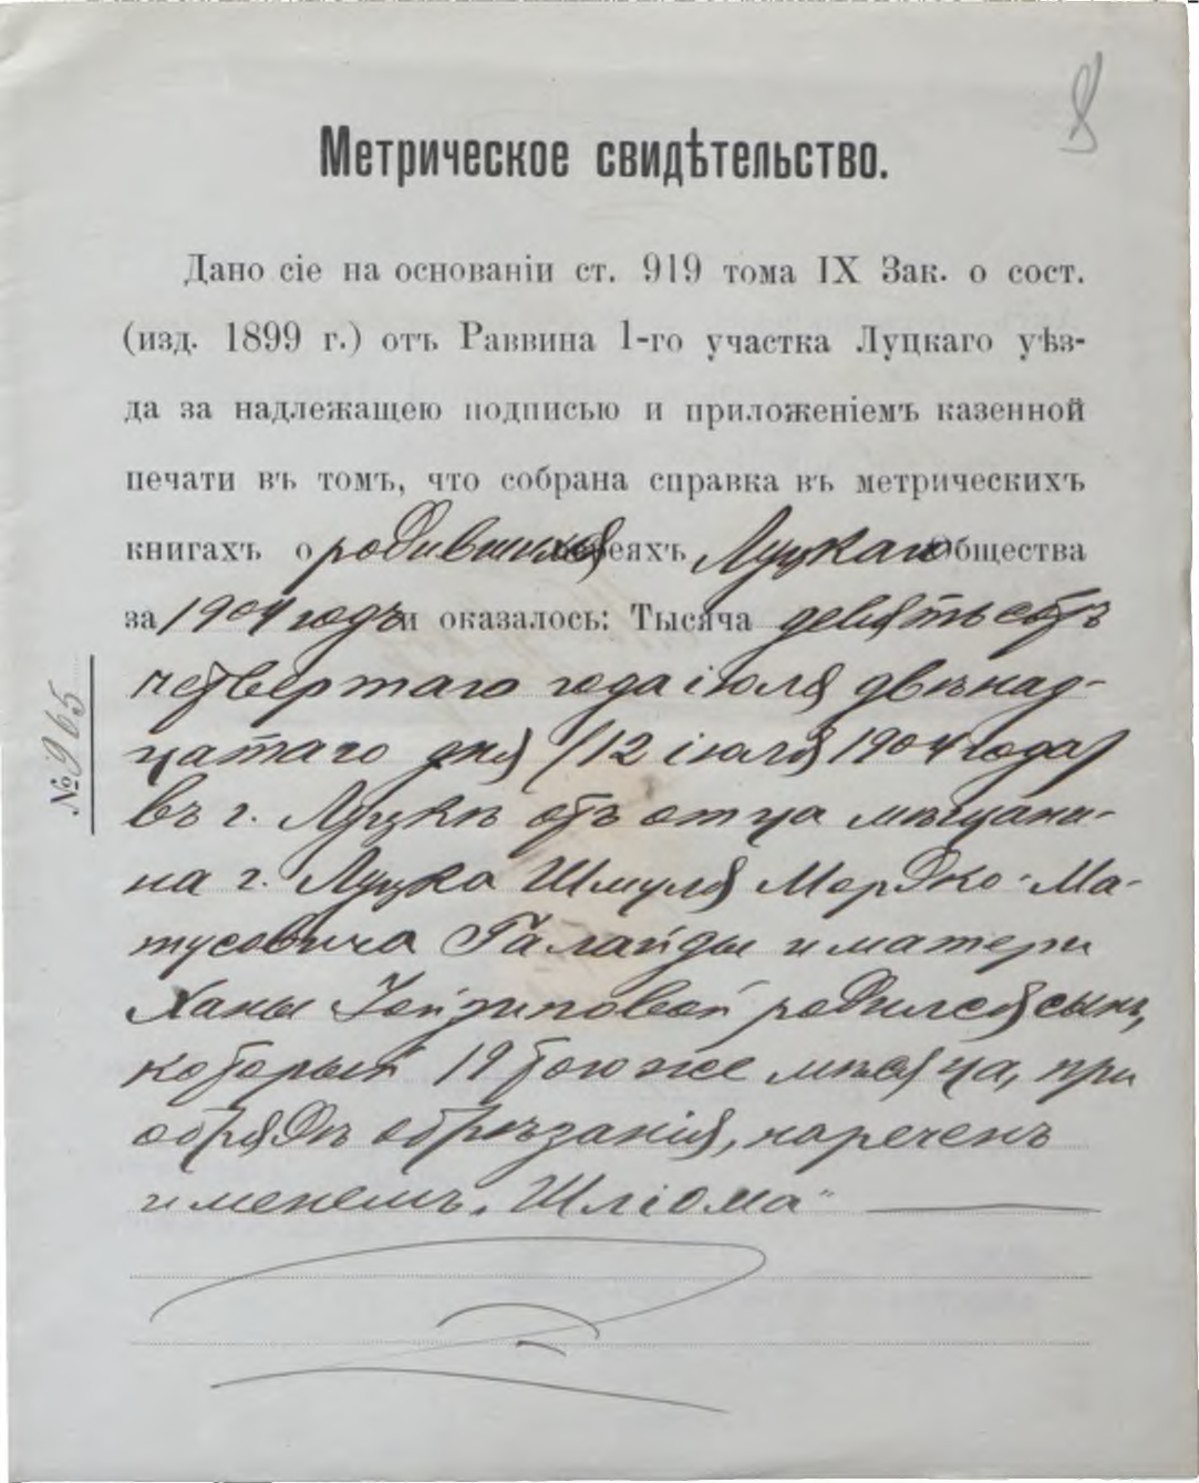 8
Метрическое свидѣтельство.
Дано сіе на основаніи ст. 919 тома IX Зак. о сост.
(изд. 1899 г.) отъ Раввина 1-го участка Луцкаго уѣз-
да за надлежащею подписью и приложеніемъ казенной
печати въ томъ, что собрана справка въ метрическихъ
книгахъ о родившихся евреяхъ Луцкаго Общества
за 1904 годъ и оказалось: Тысяча девятьсотъ
четвертаго года іюля двѣнад-
цатаго дня (12 іюля 1904 года)
въ г. Луцкѣ отъ отца мѣщани-
на г. Луцка Шмуля Мордко-Ма-
тусовича Галайды и матери
Ханы родился сынъ,
который 19 того же мѣсяца, при
обрядѣ обрѣзанія, нареченъ
именемъ „Шліома"
№ 965